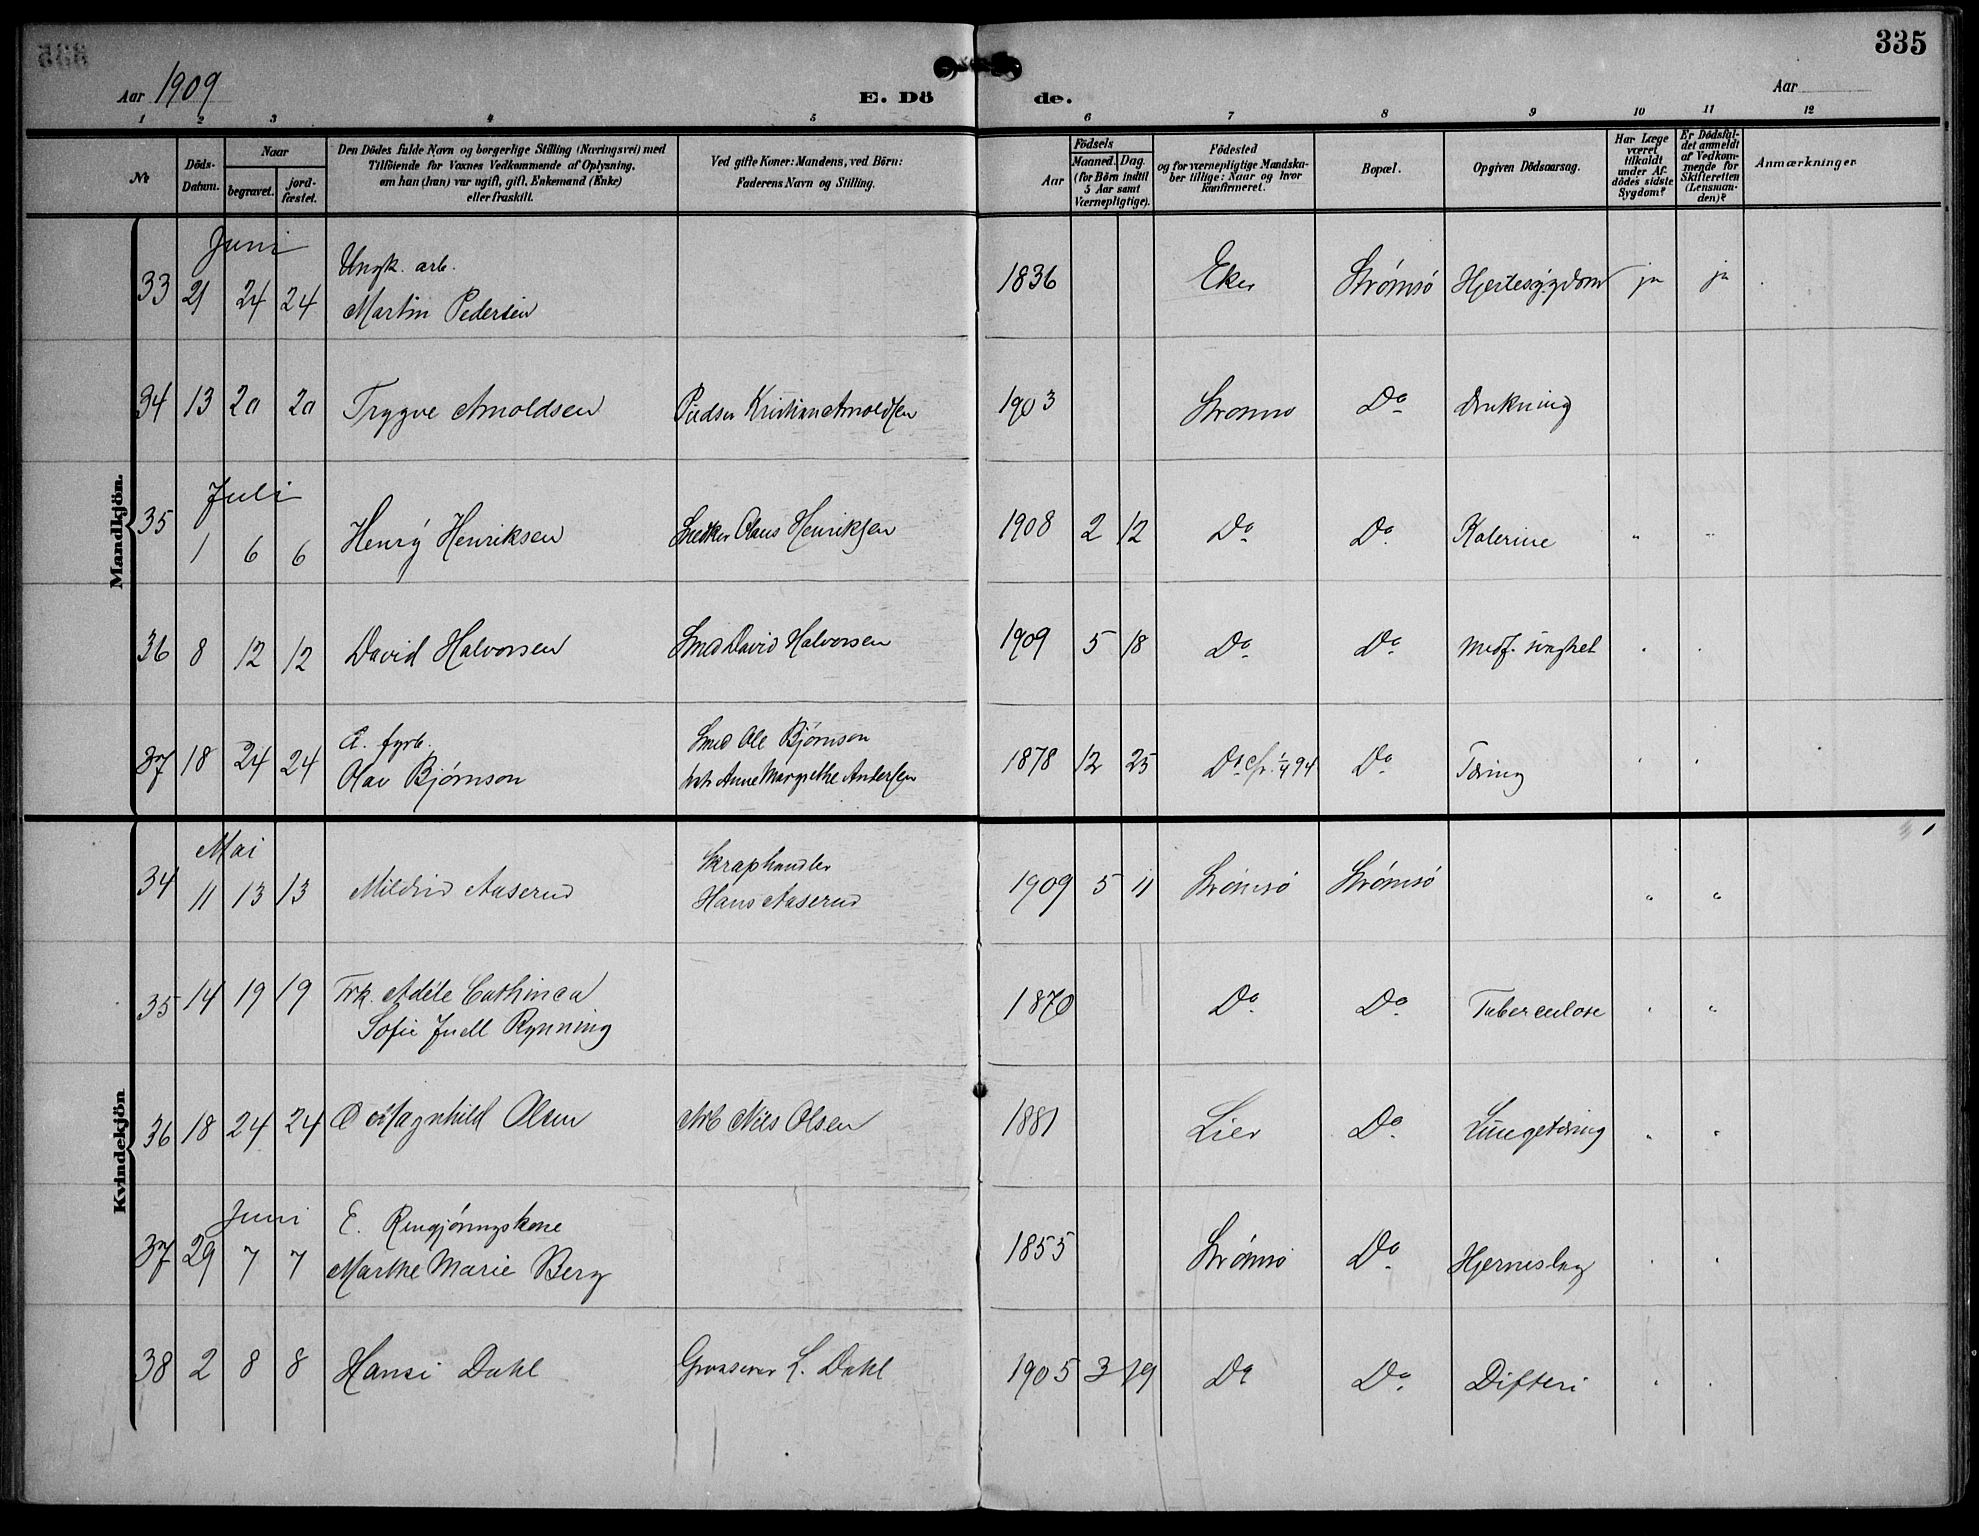 335
Aar 1909 E. Dö de. Aar
1 2 3 4 5 6 7 8 9 10 11 12
№ Döds-Datum. Naar begravet. jord-fæstet. Den Dödes fulde Navn og borgerlige Stilling (Næringsvei) med Tilföiende for Voxnes Vedkommende af Oplysning, om han (hun) var ugift, gift, Enkemand (Enke) eller fraskilt. Ved gifte Koner: Mandens, ved Börn: Faderens Navn og Stilling. Aar Födsels Maaned. Dag. (for Börn indtil 5 Aar samt Værnepligtige). Födested og for værnepligtige Mandskaber tillige: Naar og hvor konfirmeret. Bopæl. Opgiven Dödsaarsag. Har Læge været tilkaldt under Afdödes sidste Sygdom? Er Dödsfaldet anmeldt af Vedkommende for Skifteretten (Lensmanden)? Anmærkninger
Mandkjön.
Juni
33 21 24 24 Ungk. arb. Martin Pedersen 1836 Eker Strømsö Hjertesygdom ja ja
34 13 20 20 Trygve Arnoldsen Kristian Arnoldsen 1903 Strømsø Do Drukning
Juli
35 1 6 6 Henry Henriksen Snedker Olaus Henriksen 1908 2 12 Do Do Kolerine " "
36 8 12 12 David Halvorsen Smed David Halvorsen 1909 5 18 Do Do Medf. svaghet
37 18 24 24 Olav Bjørnson Smed Ole Bjørnson Anne Margrethe Andersen 1878 12 25 Do Do Tæring
Kvindekjön
Mai
34 11 13 13 Mildrid Aaserud Skraphandler Hans Aaserud 1909 5 11 Strømsö Strømsö " "
35 14 19 19 Frk. Adéle Cathinca Sofie Juell Rynning 1870 Do Do Tuberculose
36 18 24 24 Magnhild Olsen Arb Nils Olsen 1881 Lier Do Lungetæring " "
Juni
37 29 7 7 E. Rengjøringskone Marthe Marie Berg 1855 Strømsø Do Hjerneslag
38 2 8 8 Hansi Dahl Grosserer L. Dahl 1905 3 19 Do Do Difteri